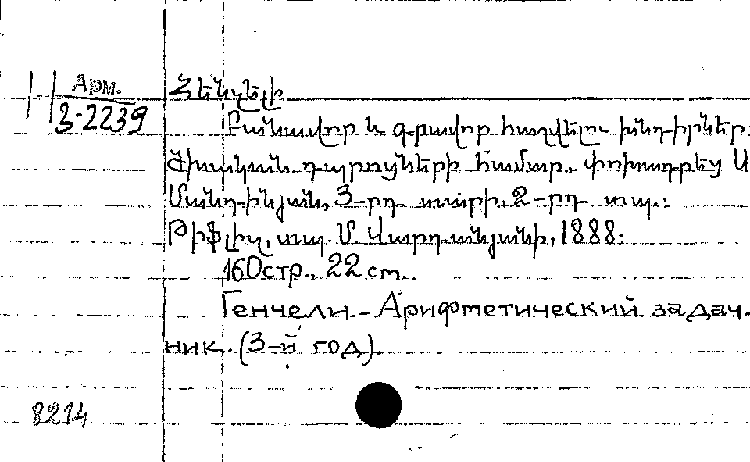 Арм.
3-2239
Հենչելի
Բանաւոր և գրաւոր հաշւելու խնդիրներ.
Ծխական դպրոցների համար., փոխադրեց Ս
Մանդինյան, 3-րդ տարի, 2-րդ տպ.:
Թիֆլիզ, տպ Մ. Վարդանյանի, 1888:
160стр., 22 cm.
Генчели - Арифметический задач.
ник. (3-й год).
8214